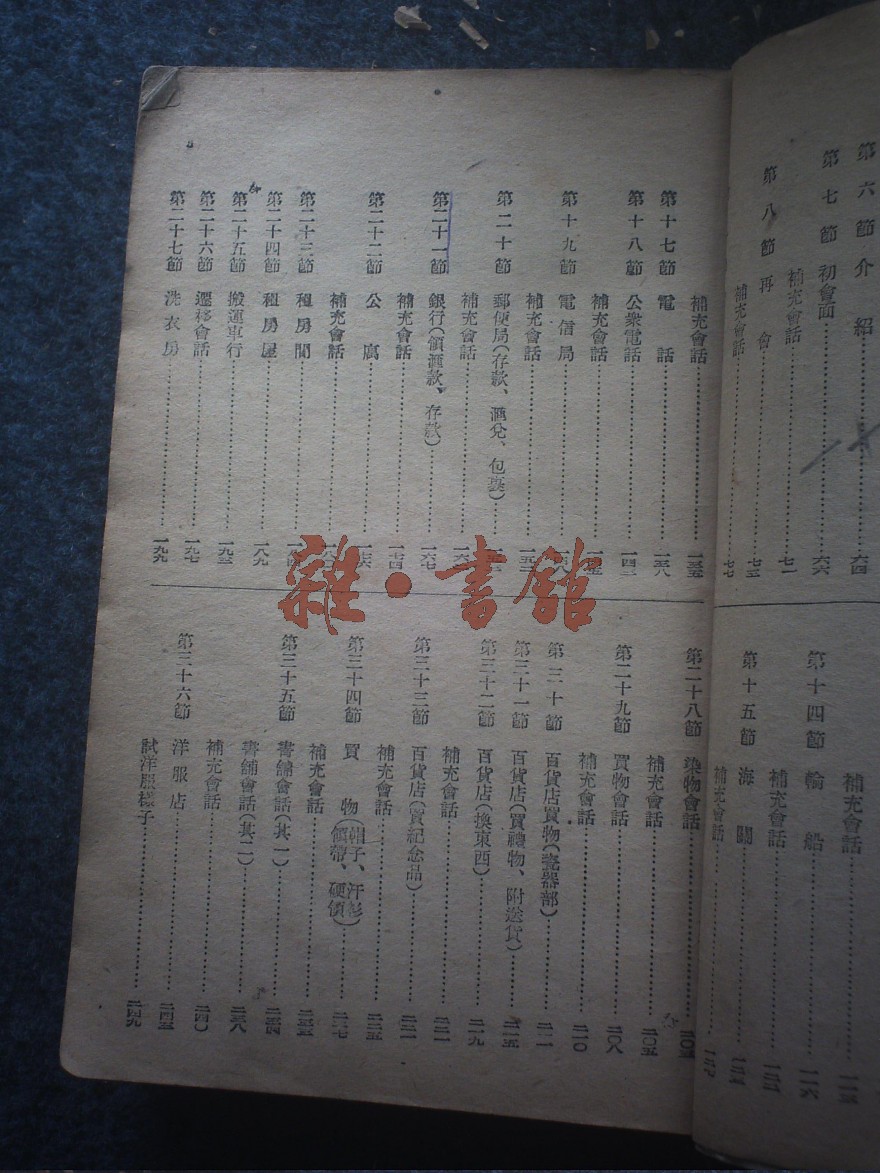 第六節 介紹……六四
第七節 初會面……六六
補充會話……七一
第八節 再會……七五
補充會話……七七
補充會話
第十四節 輪船……一一六
補充會話
第十五節 海關
補充會話
補充會話……一三五
第十七節 電話……一三八
第十八節 公衆電話……一四三
補充會話
第十九節 電信局……一四八
補充會話……一五一
第二十節 郵便局(存款、滙兌、包裹)
補充會話
第二十一節 銀行(領滙款、存款)……一六七
補充會話……一七四
第二十二節 公寓……一七六
補充會話
第二十三節 租房間
第二十四節 租房屋……一八九
第二十五節 搬運車行……一九三
第二十六節 遷移會話……一九七
第二十七節 洗衣房……一九九
第二十八節 染物會話
補充會話……二〇五
第二十九節 買物會話……二〇八
補充會話……二一〇
第三十節 百貨店買物(瓷器部)
第三十一節 百貨店(買禮物、附送貨)……二一五
第三十二節 百貨店(換東西)……二一九
補充會話
第三十三節 百貨店(買紀念品)
補充會話……二二五
第三十四節 買物(帽子、汗衫、領帶、硬領)……二二七
補充會話
第三十五節 書舖會話(其一)
書舖會話(其二)……二三八
補充會話……二四〇
第三十六節 洋服店……二四五
試洋服樣子……二四九
雜·書館